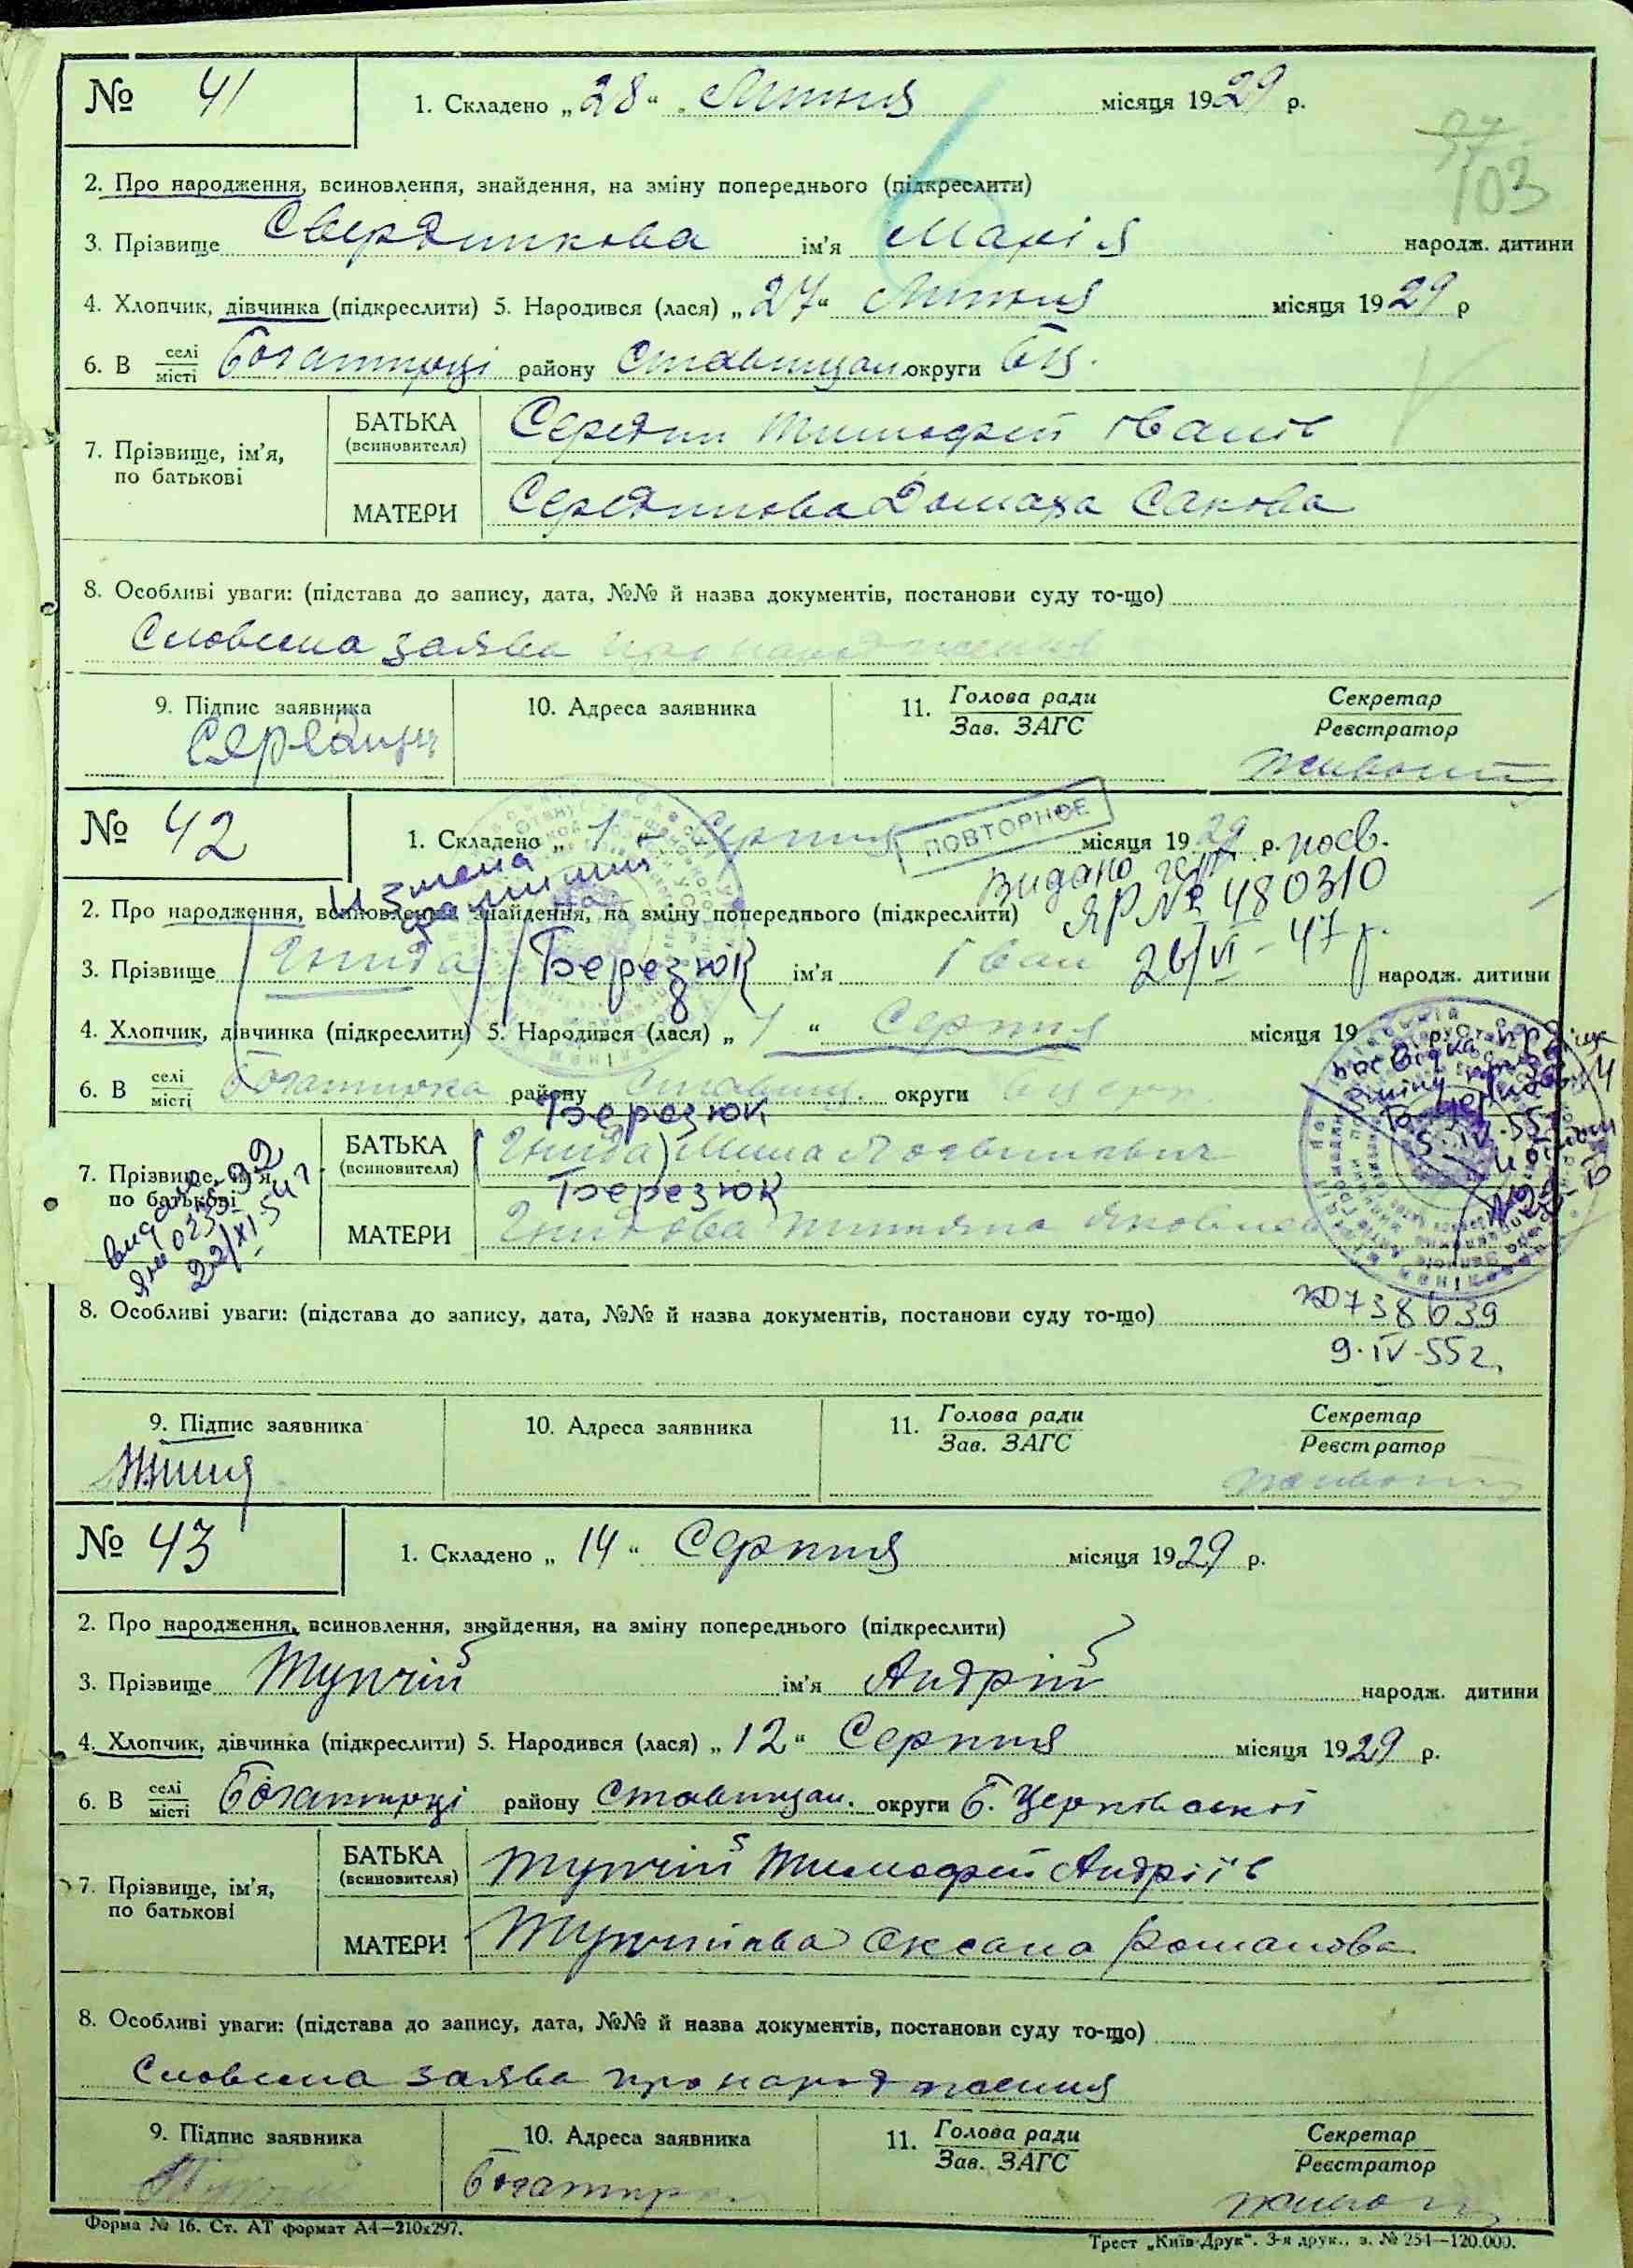 № 41
1. Складено „28“ Липня місяця 1929 р.
97
103
2. Про народження, всиновлення, знайдення, на зміну попереднього (підкреслити)
3. Прізвище Свердликова ім'я Марія народж. дитини
4. Хлопчик, дівчинка (підкреслити) 5. Народився (лася) „27“ Липня місяця 1929 р
6. В селі/місті Богатирці району Ставищан. округи БЦ.
7. Прізвище, ім'я, по батькові
БАТЬКА (всиновителя) Середин Тимофей Іванів
МАТЕРИ Сердликова Домаха Сакова
8. Особливі уваги: (підстава до запису, дата, №№ й назва документів, постанови суду то-що)
Словесна заява про народження
9. Підпис заявника
10. Адреса заявника
11. Голова ради / Зав. ЗАГС
Секретар / Реєстратор
№ 42
1. Складено „1“ Серпня місяця 1929 р.
ПОВТОРНОЕ
Измена фамилии
Видано посв.
ЯР № 480310
26/VI-47 р.
2. Про народження, всиновлення, знайдення, на зміну попереднього (підкреслити)
3. Прізвище Гнида Березюк ім'я Іван народж. дитини
4. Хлопчик, дівчинка (підкреслити) 5. Народився (лася) „1“ Серпня місяця 19
6. В селі/місті Богатирка району Ставищ. округи БЦерк
7. Прізвище, ім'я, по батькові
Березюк
БАТЬКА (всиновителя) (Гнида)
Березюк
МАТЕРИ Гнидова Титяна Яковл
22/XI-54 г
5.IV-55
8. Особливі уваги: (підстава до запису, дата, №№ й назва документів, постанови суду то-що)
738639
9.IV-55г.
9. Підпис заявника
10. Адреса заявника
11. Голова ради / Зав. ЗАГС
Секретар / Реєстратор
№ 43
1. Складено „14“ Серпня місяця 1929 р.
2. Про народження, всиновлення, знайдення, на зміну попереднього (підкреслити)
3. Прізвище Тупчій ім'я Андрій народж. дитини
4. Хлопчик, дівчинка (підкреслити) 5. Народився (лася) „12“ Серпня місяця 1929 р.
6. В селі/місті Богатирці району Ставищан. округи Б. Церківської
7. Прізвище, ім'я, по батькові
БАТЬКА (всиновителя) Тупчій Тимофей Андріїв
МАТЕРИ Тупчійова Оксана Романова
8. Особливі уваги: (підстава до запису, дата, №№ й назва документів, постанови суду то-що)
Словесна заява про народження
9. Підпис заявника
10. Адреса заявника
11. Голова ради / Зав. ЗАГС
Секретар / Реєстратор
Форма № 16. Ст. АТ формат А4—210х297.
Трест „Київ-Друк“. 3-я друк., з. № 254—120.000.